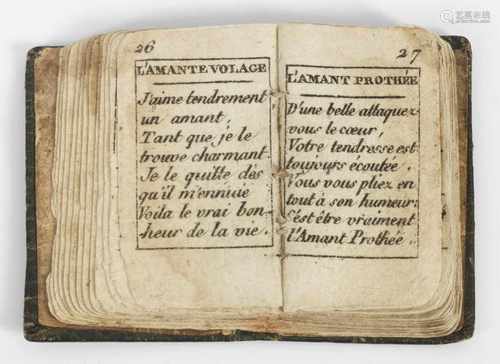 26
L'AMANTE VOLAGE
J'aime tendrement
un amant,
Tant que je le
trouve charmant
Je le quitte dès
qu'il m'ennuie
Voila le vrai bon-
heur de la vie.
27
L'AMANT PROTHÉE
D'une belle attaquez
vous le cœur,
Votre tendresse est
toujours écoutée.
Vous vous pliez en
tout à son humeur:
C'ést être vraiment
l'Amant Prothée.